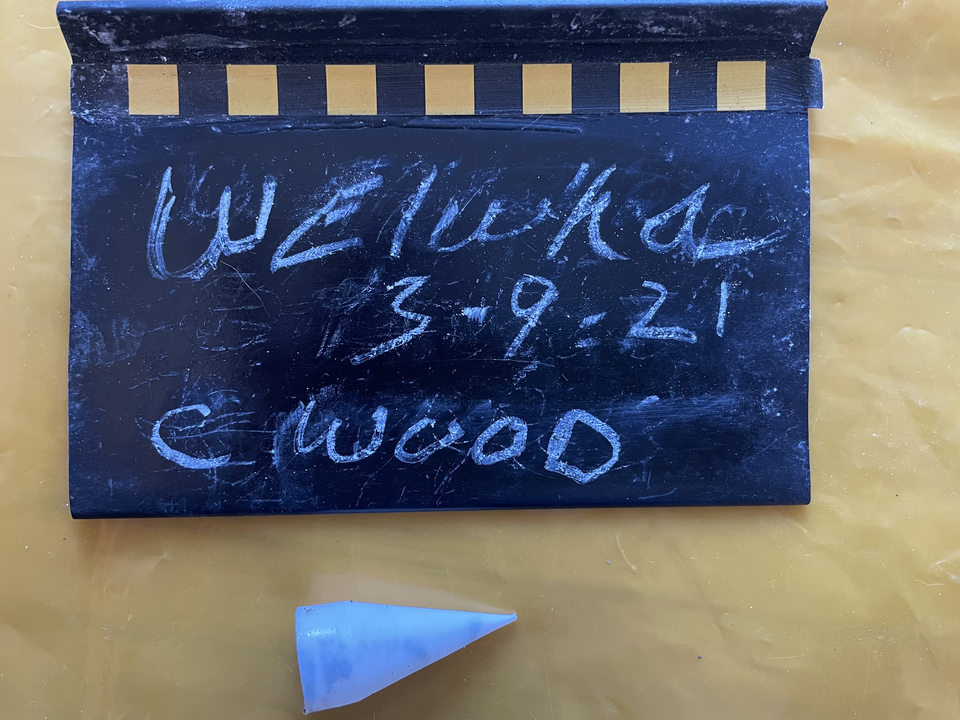 WEIWKA
3-9-21
C WOOD